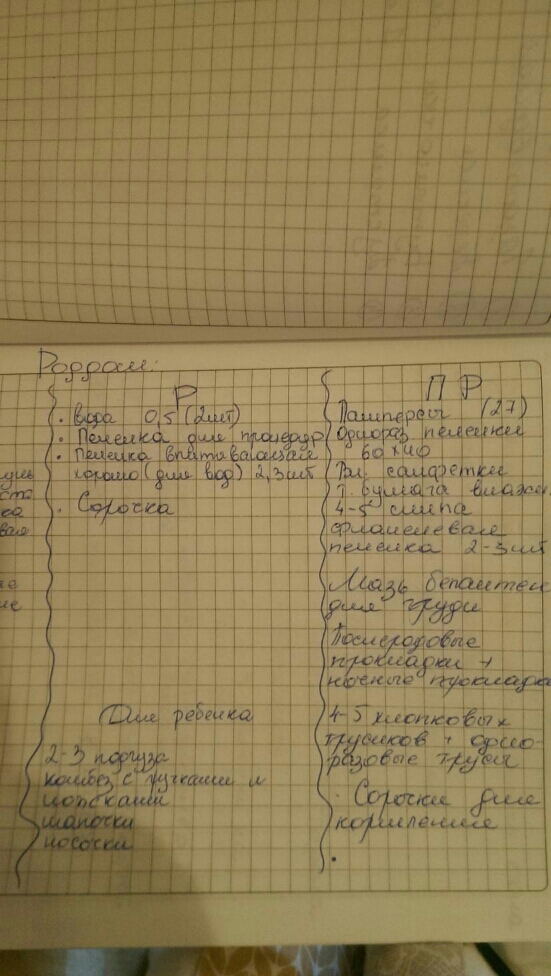 Роддом:
Р
• Вода 0,5 (2шт)
• Пеленка для процедур
• Пеленка впитывающая
хорошо (для вод) 2,3шт
• Сорочка
Для ребенка
2-3 подгуза
комбез с ручками и
ножками
шапочки
носочки
П Р
Памперсы (27)
Однораз пеленки
60×40
Вл. салфетки
Т. бумага влажн.
4-5 слипа
фланелевая
пеленка 2-3шт
Мазь бепантен
для груди
Послеродовые
прокладки +
ночные прокладки
4-5 хлопковых
трусиков + одно-
разовые трусы
• Сорочки для
кормления